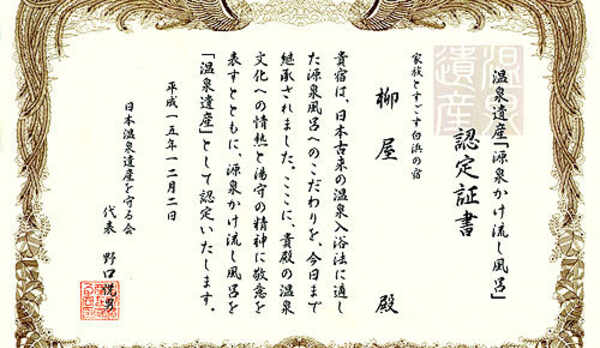 温泉遺産
温泉遺産「源泉かけ流し風呂」
認定証書
家族とすごす白浜の宿
柳屋 殿
貴宿は、日本古来の温泉入浴法に適し
た源泉風呂へのこだわりを、今日まで
継承されました。ここに、貴殿の温泉
文化への情熱と湯守の精神に敬意を
表すとともに、源泉かけ流し風呂を
「温泉遺産」として認定いたします。
平成一五年一二月二日
日本温泉遺産を守る会
代表 野口悦男